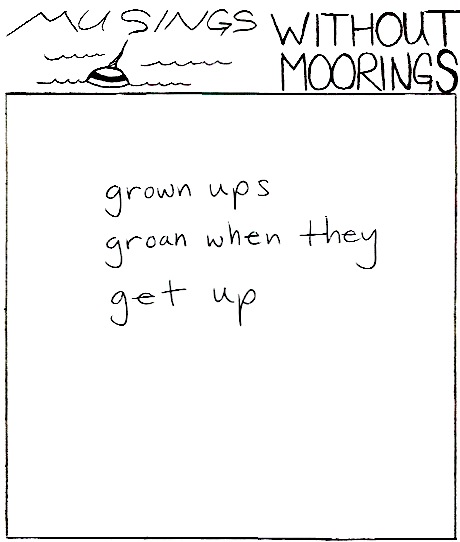 MUSINGS WITHOUT
MOORINGS
grown ups
groan when they
get up